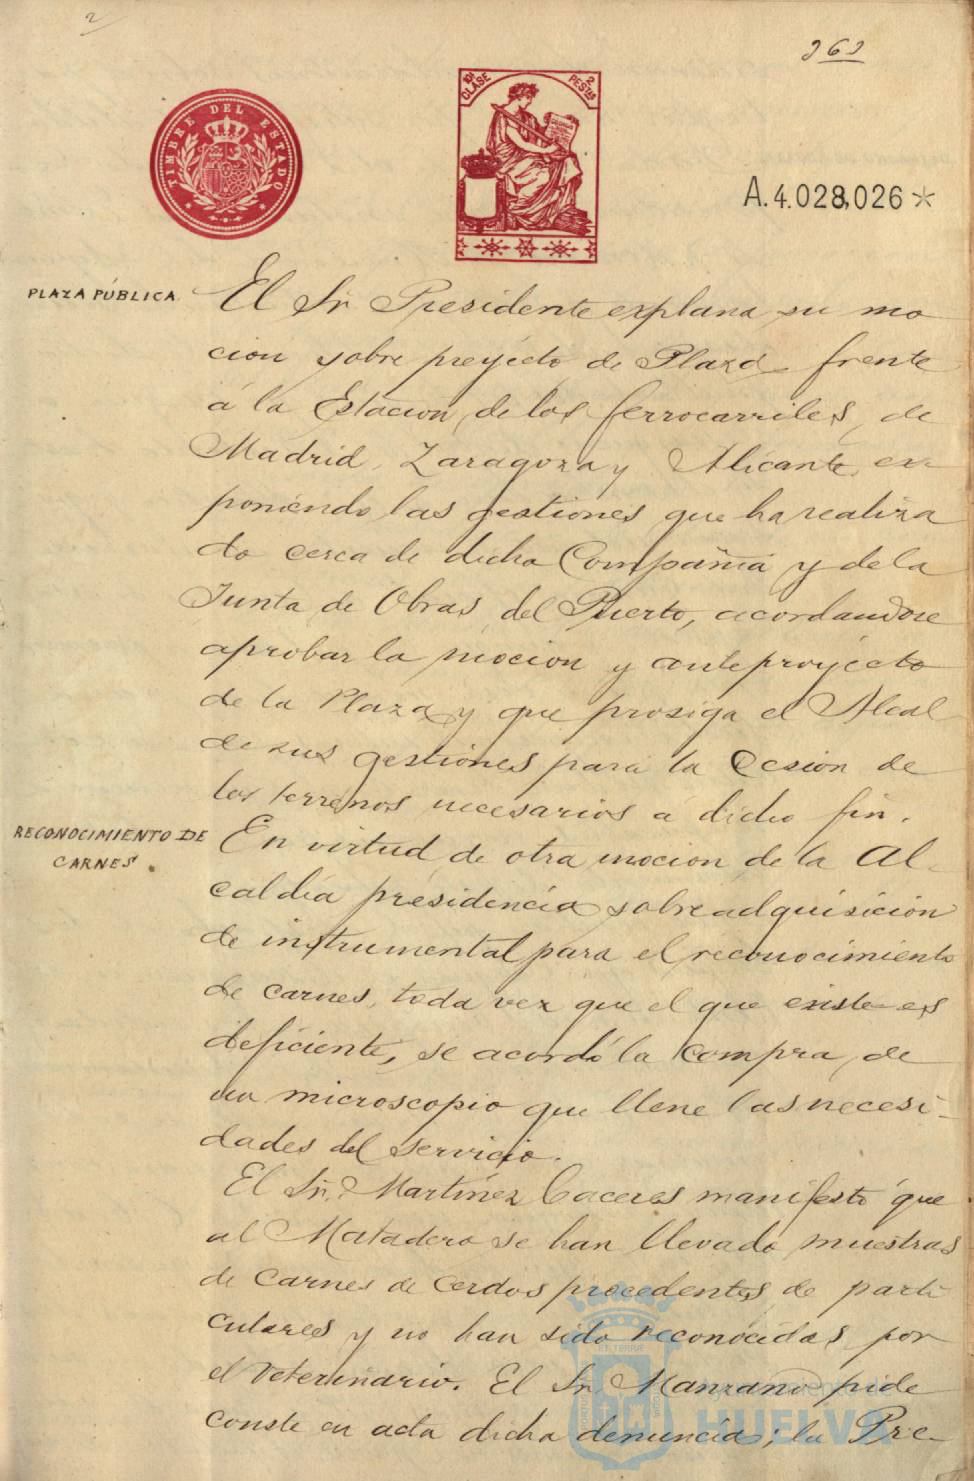 2
262
TIMBRE DEL ESTADO
10ª CLASE
2 PESTAS
A.4.028,026*
PLAZA PÚBLICA
El Sr. Presidente explana su mo
cion sobre proyecto de Plaza frente
á la Estacion de los ferrocarriles de
Madrid, Zaragoza y Alicante, ex-
poniendo las gestiones que ha realiza
do cerca de dicha Compañia y de la
Junta de Obras del Puerto, acordandose
aprobar la mocion y anteproyecto
de la Plaza y que prosiga el Alcal
de sus gestiones para la cesion de
los terrenos necesarios á dicho fin.
RECONOCIMIENTO DE
CARNES.
En virtud de otra mocion de la Al-
caldía presidencia sobre adquisición
de instrumental para el reconocimiento
de carnes, toda vez que el que existe es
deficiente, se acordó la compra de
un microscopio que llene las necesi-
dades del servicio.
El Sr. Martínez Caceres manifestó que
al Matadero se han llevado muestras
de carnes de cerdos procedentes de parti
culares y no han sido reconocidas por
el Veterinario. El Sr. Manzano pide
conste en acta dicha denuncia; la Pre-
Ayuntamiento de
HUELVA